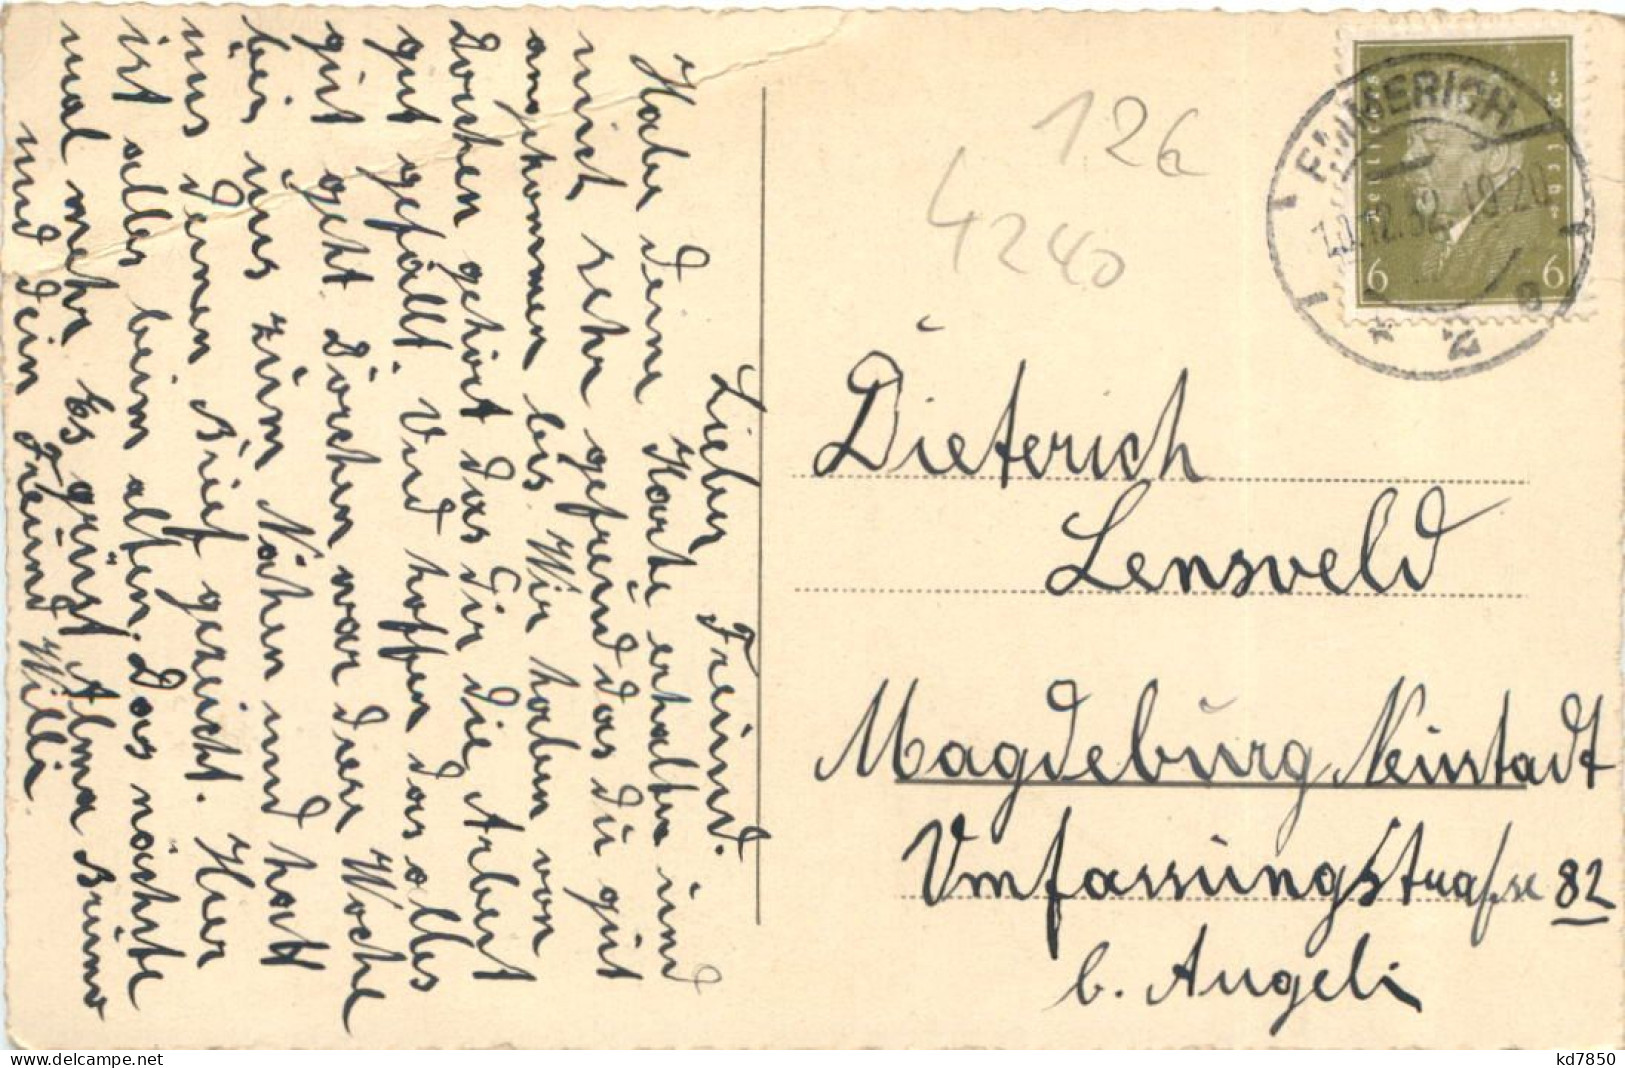 Lieber Freund.
Habe deine Karte erhalten und
mich sehr gefreud das du gut
angekommen bis. Wir haben von
Dorchen gehört das Dir die Arbeit
gut gefällt. Und hoffen das alles
gut geht. Dorchen war diese Woche
bei uns zum Nähen und hatt
uns deinen Brief gezeicht. Hier
ist alles beim alten. Das nächste
mal mehr Es grüst Alma Bruno
und dein Freund Willi
126
4240
EMMERICH
12.32. 19-20
* 2 a
Deutsches Reich
6 6
Dieterich
Lensveld
Magdeburg, Neustadt
Umfassungstraße 82
b. Angeli
delcampe.net
kd7850